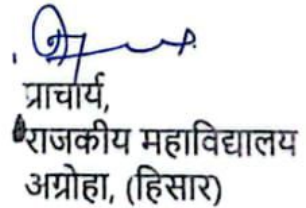 प्राचार्य,
राजकीय महाविद्यालय
अग्रोहा, (हिसार)